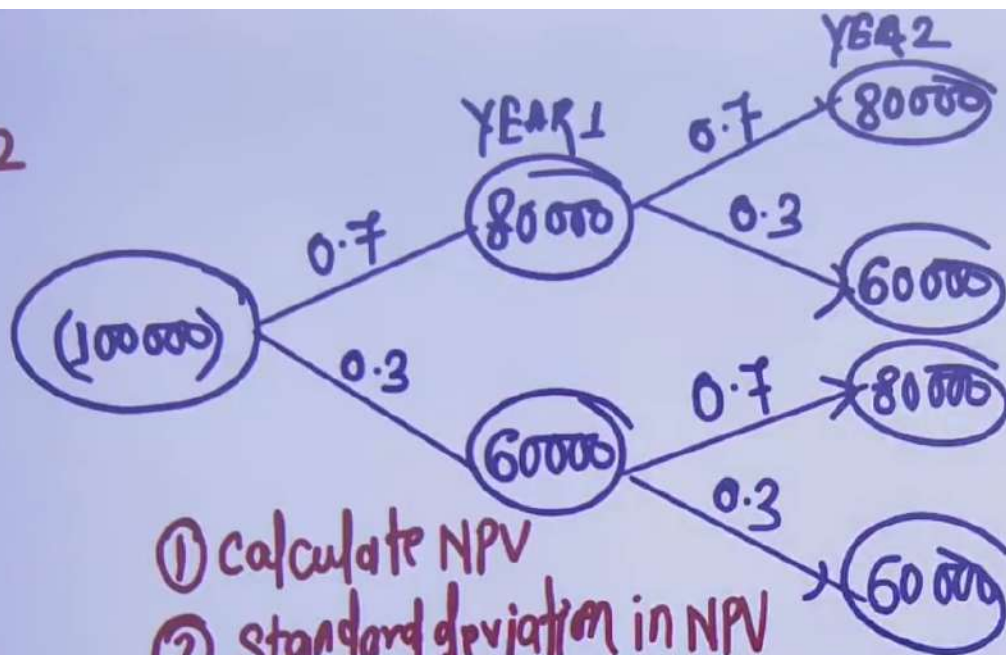 2
YEAR 2
YEAR 1
80000
0.7
80000
0.3
0.7
60000
(100000)
0.3
60000
0.7
80000
0.3
60000
① Calculate NPV
② Standard deviation in NPV